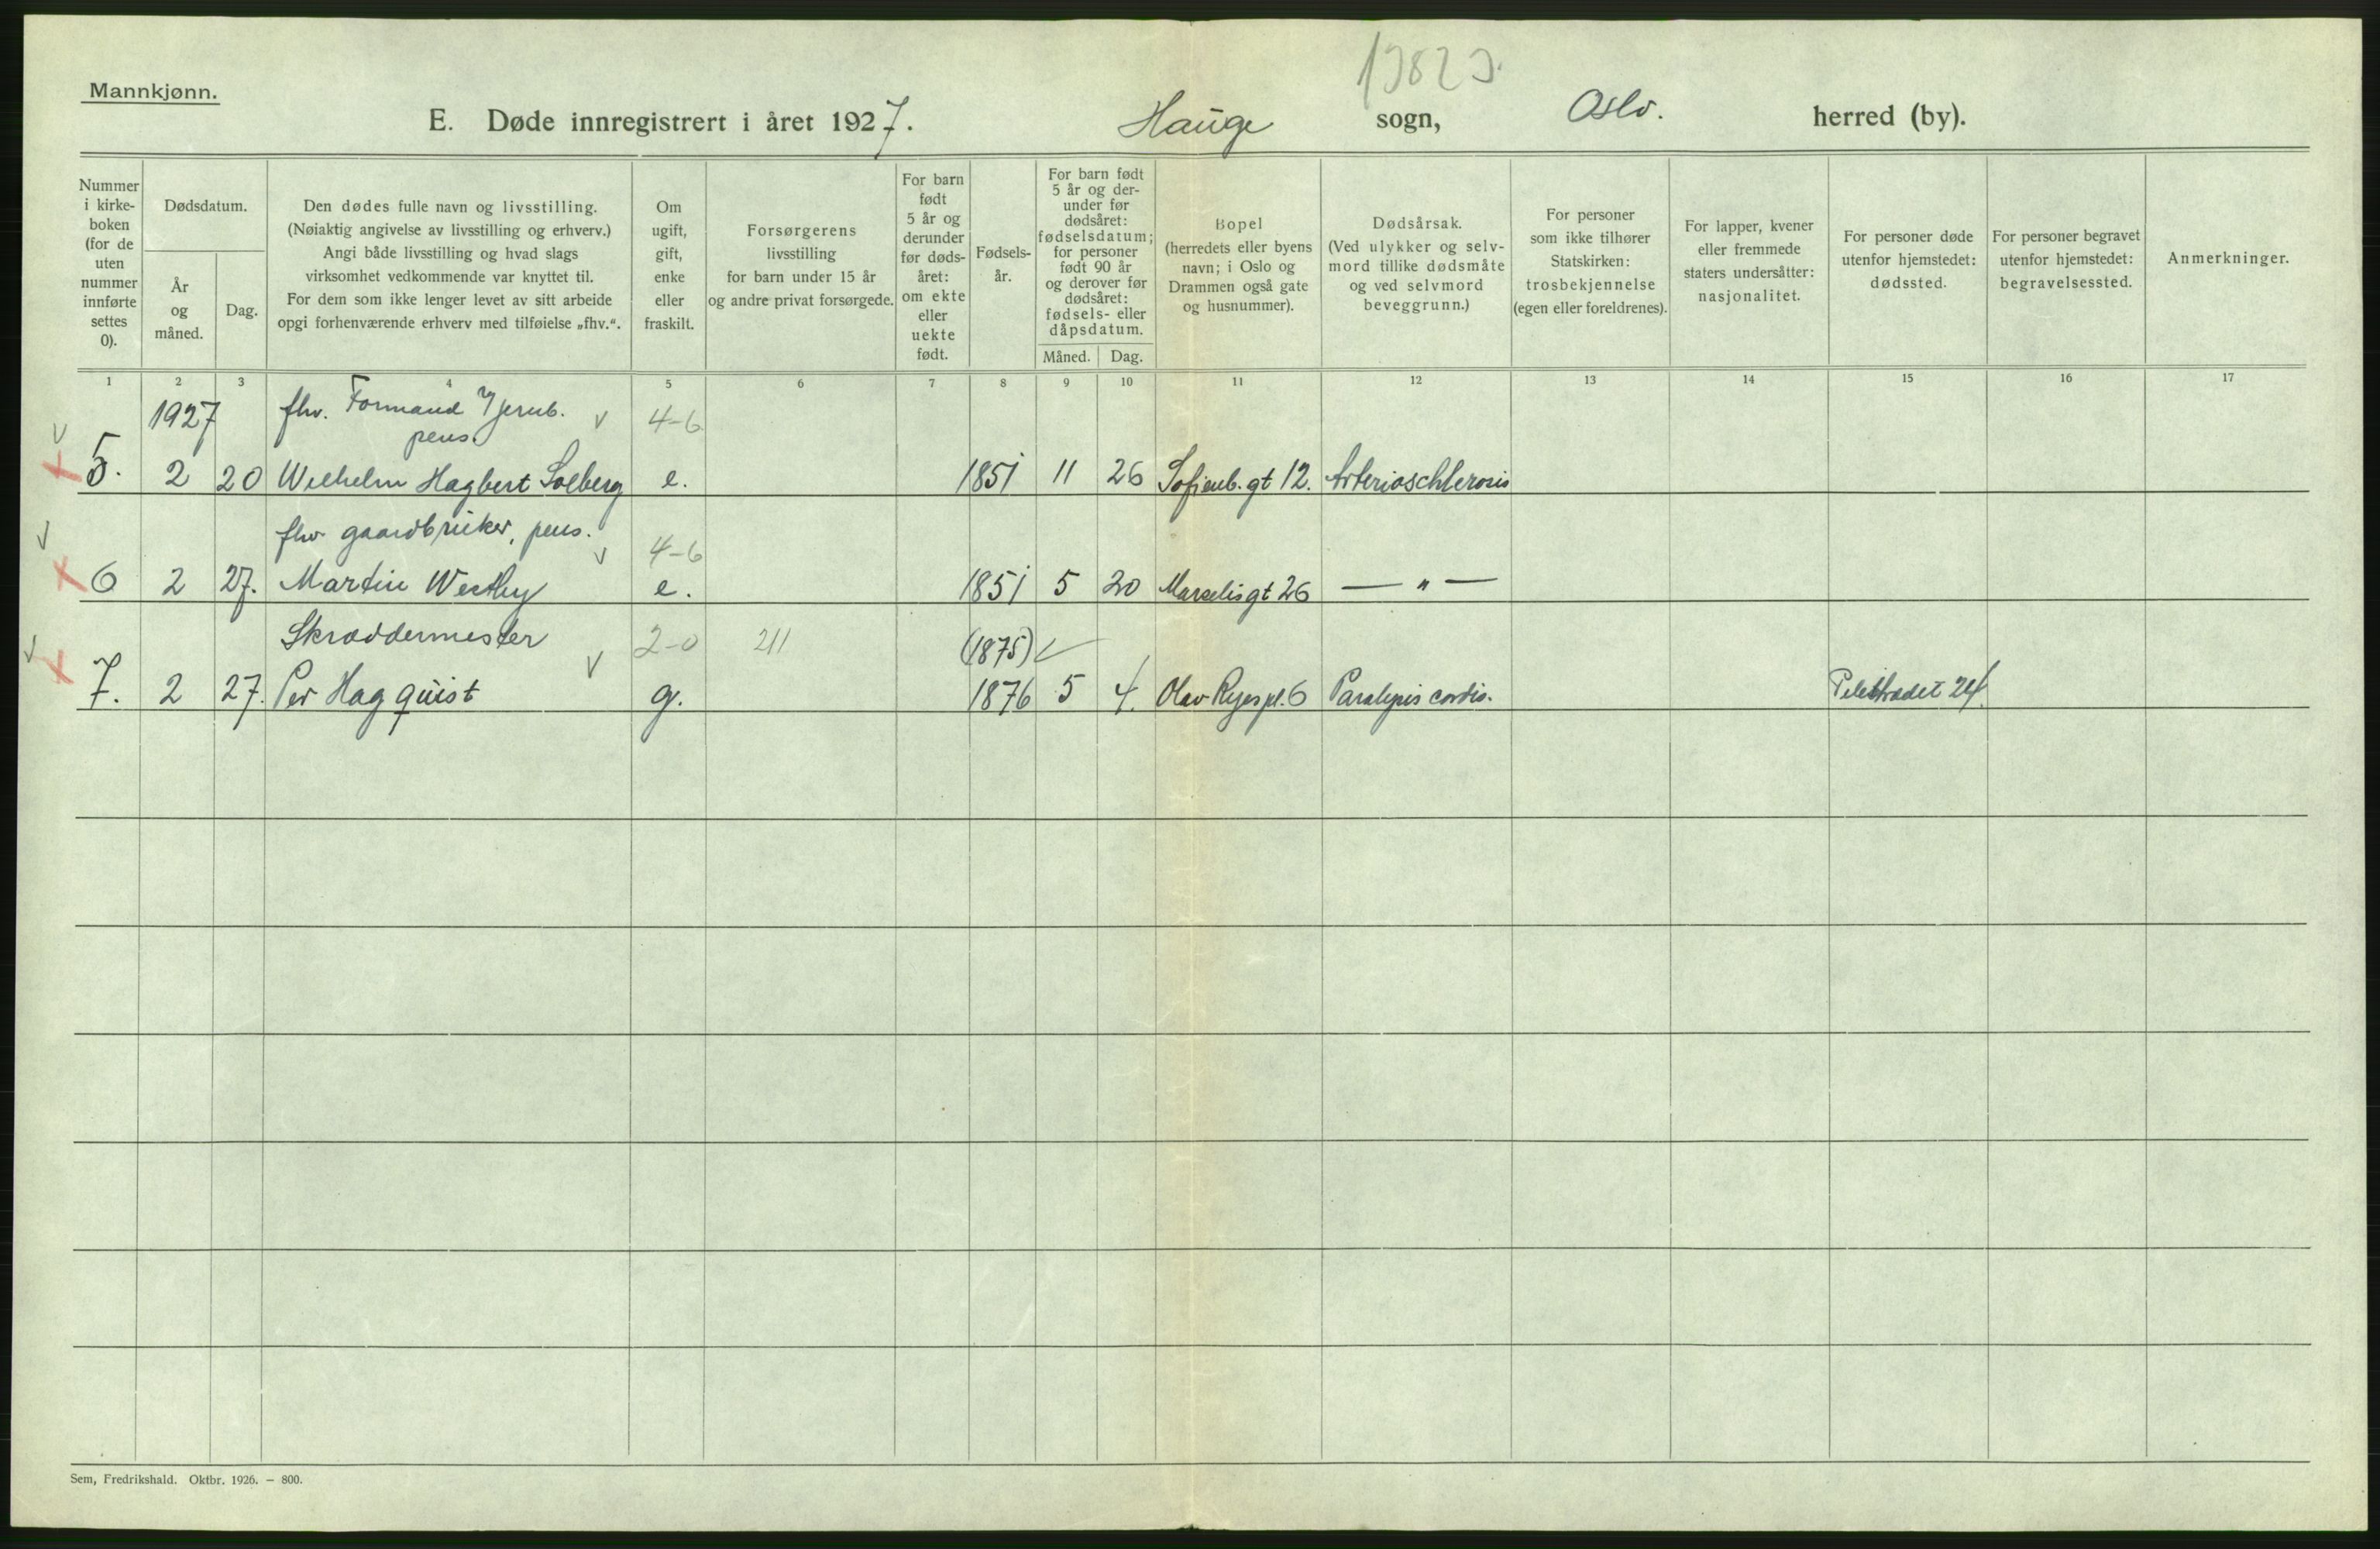 13823.
Mannkjønn.
E. Døde innregistrert i året 1927. Hauge sogn, Oslo. herred (by).
Nummer i kirke-boken (for de uten nummer innførte settes 0).
Dødsdatum.
År og måned.
Dag.
Den dødes fulle navn og livsstilling.
(Nøiaktig angivelse av livsstilling og erhverv.)
Angi både livsstilling og hvad slags
virksomhet vedkommende var knyttet til.
For dem som ikke lenger levet av sitt arbeide
opgi forhenværende erhverv med tilføielse „fhv.“.
Om ugift, gift, enke eller fraskilt.
Forsørgerens
livsstilling
for barn under 15 år
og andre privat forsørgede.
For barn født 5 år og derunder før døds-året: om ekte eller uekte født.
Fødsels-år.
For barn født
5 år og der-
under før
dødsåret:
fødselsdatum;
for personer
født 90 år
og derover før
dødsåret:
fødsels- eller
dåpsdatum.
Måned. Dag.
Bopel
(herredets eller byens
navn; i Oslo og
Drammen også gate
og husnummer).
Dødsårsak.
(Ved ulykker og selv-
mord tillike dødsmåte
og ved selvmord
beveggrunn.)
For personer
som ikke tilhører
Statskirken:
trosbekjennelse
(egen eller foreldrenes).
For lapper, kvener
eller fremmede
staters undersåtter:
nasjonalitet.
For personer døde
utenfor hjemstedet:
dødssted.
For personer begravet
utenfor hjemstedet:
begravelsessted.
Anmerkninger.
1 2 3 4 5 6 7 8 9 10 11 12 13 14 15 16 17
1927 fhv. Formand v/ jernb. 4-6
pens.
5. 2 20 Wilhelm Hagbert Solberg e. 1851 11 26 Sofienb. gt 12. Arterioschlerosis
fhv. gaardbruker, pens. 4-6
6 2 27. Martin Westby e. 1851 5 20 Marselis gt 26 — " —
Skræddermester 2-0 211 (1875)
7. 2 27. Per Hagquist g. 1876 5 4. Olav Ryes pl. 6 Paralysis cordis. Pilestrædet 24.
Sem, Fredrikshald. Oktbr. 1926. — 800.